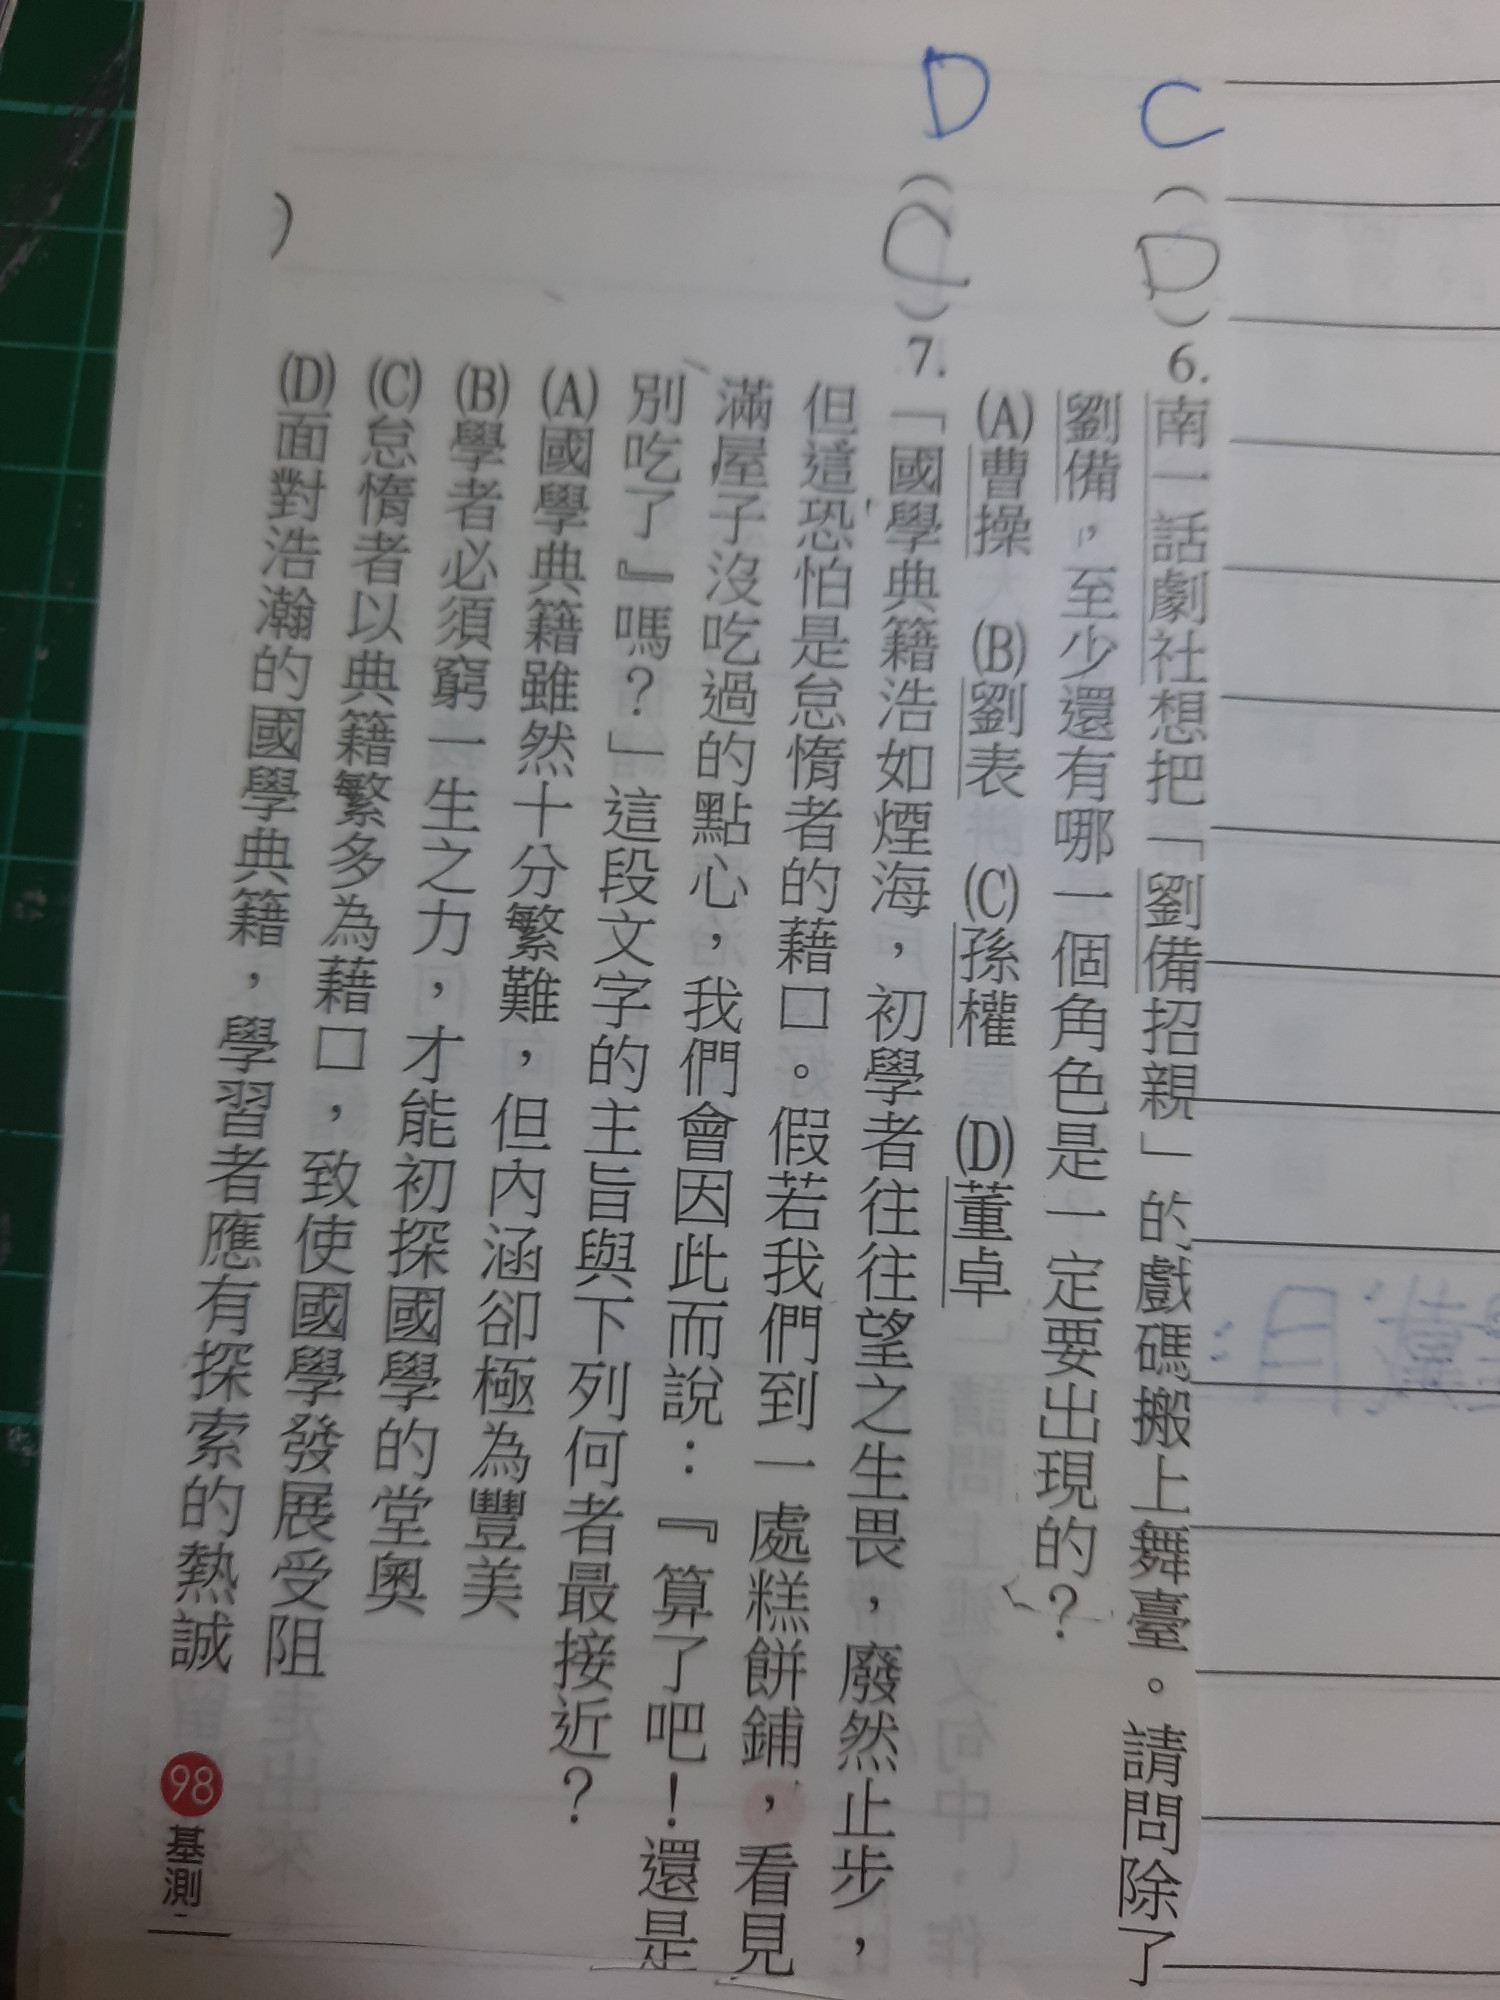 C
(D)6.南一話劇社想把「劉備招親」的戲碼搬上舞臺。請問除了
劉備，至少還有哪一個角色是一定要出現的？
(A)曹操 (B)劉表 (C)孫權 (D)董卓
D
(C)7.「國學典籍浩如煙海，初學者往往望之生畏，廢然止步，
但這恐怕是怠惰者的藉口。假若我們到一處糕餅鋪，看見
滿屋子沒吃過的點心，我們會因此而說：『算了吧！還是
別吃了』嗎？」這段文字的主旨與下列何者最接近？
(A)國學典籍雖然十分繁難，但內涵卻極為豐美
(B)學者必須窮一生之力，才能初探國學的堂奧
(C)怠惰者以典籍繁多為藉口，致使國學發展受阻
(D)面對浩瀚的國學典籍，學習者應有探索的熱誠
98基測
)